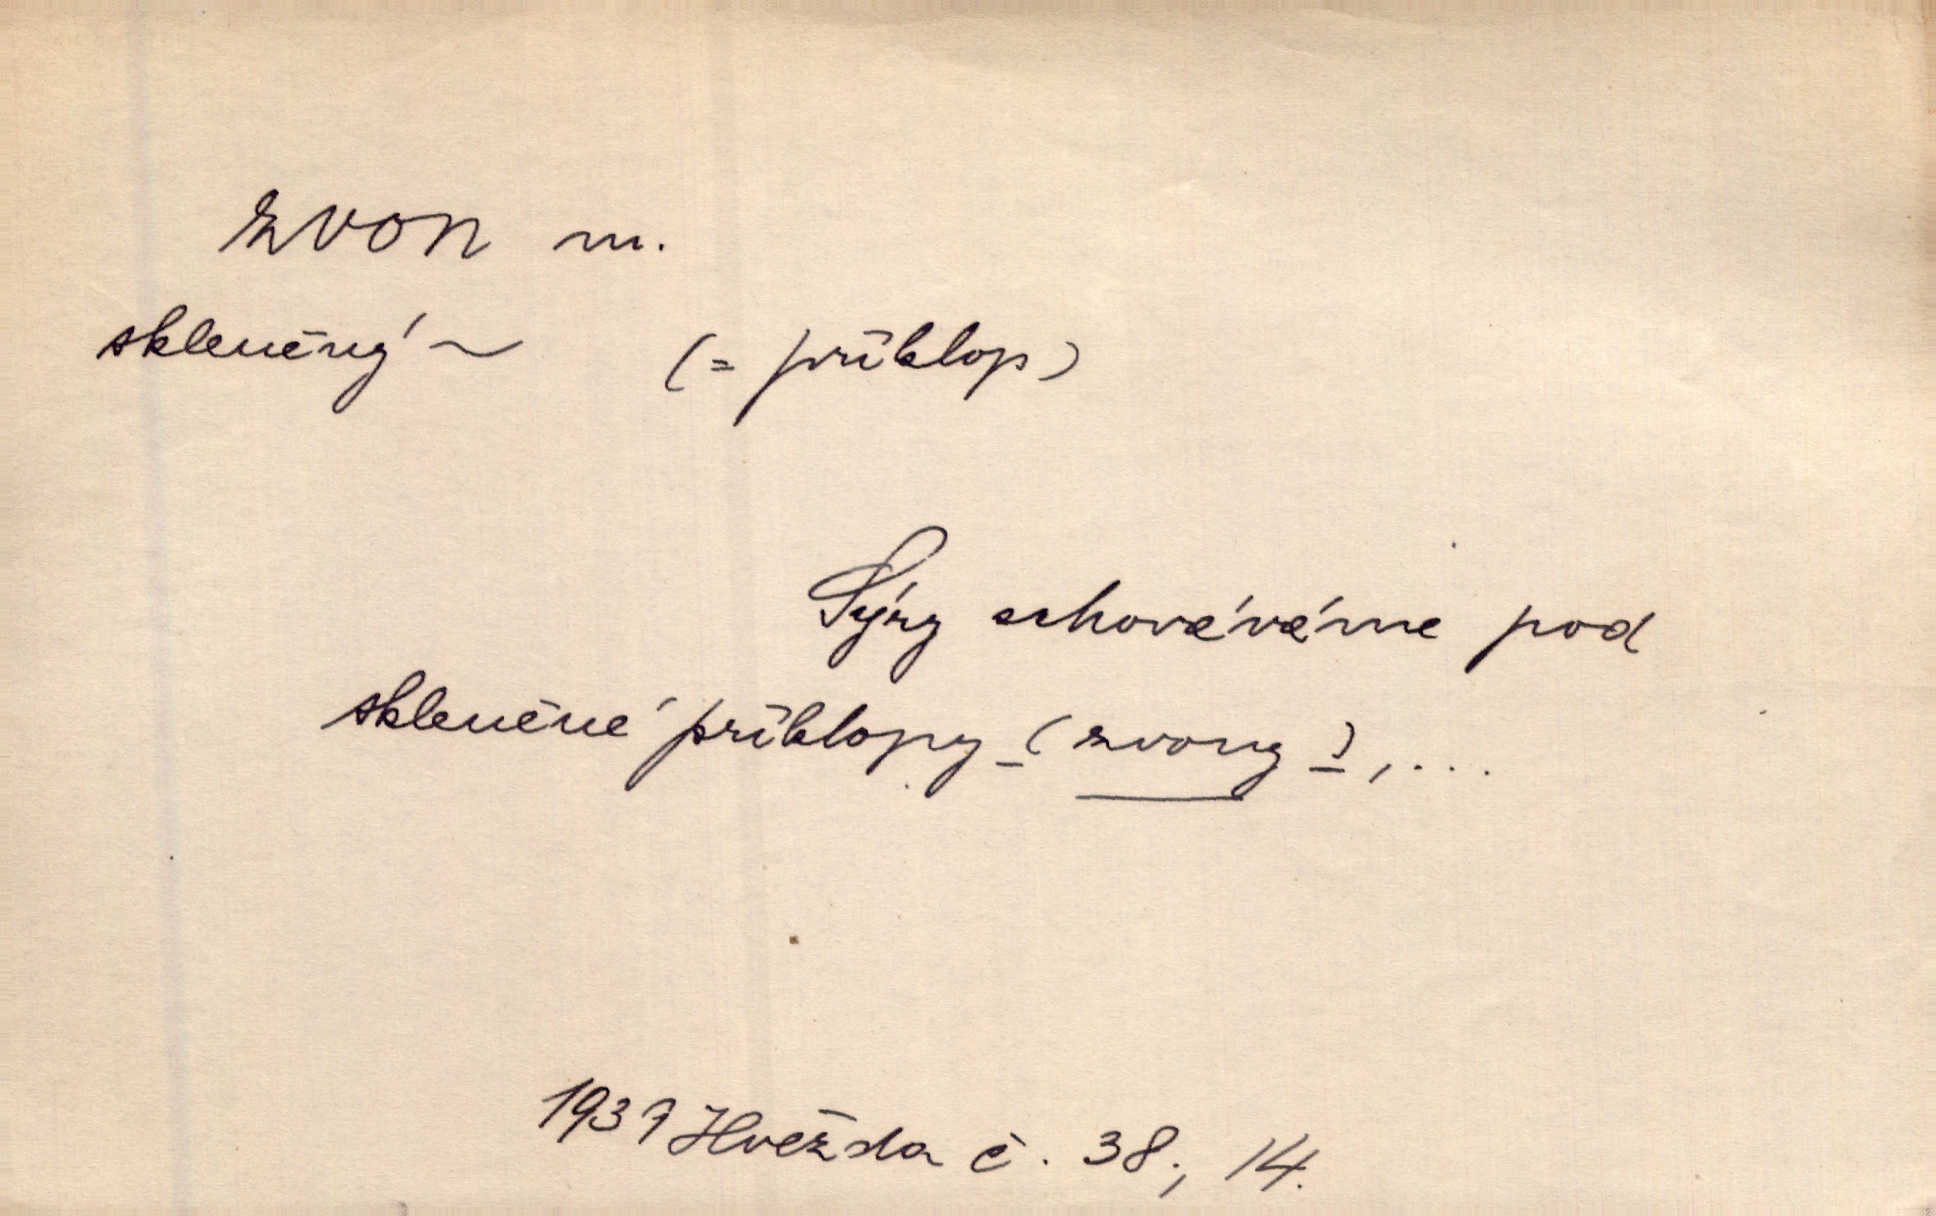 zvon m.
skleněný ~ (= příklop)
Sýry schováváme pod
skleněné příklopy (zvony), ...
1937 Hvězda č. 38., 14.